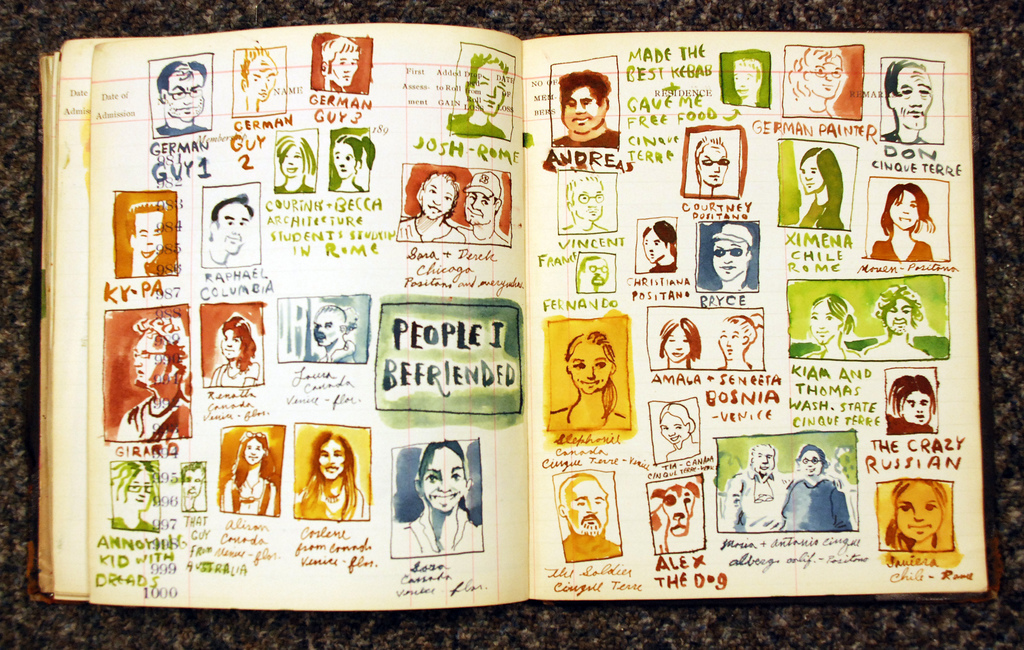 Date
Admis
Date of
Admission
NAME
First
Assess-
ment
Added
to Roll
GAIN
Drop
from
Roll
LOSS
DATE
Membership
189
GERMAN
GUY 1
GERMAN
GUY
2
GERMAN
GUY 3
JOSH-ROME
COURTNEY + BECCA
ARCHITECTURE
STUDENTS STUDYIN
IN ROME
KY-PA
RAPHAEL
COLUMBIA
Sara + Derek
Chicago
Positano and everywhere
981
982
983
984
985
986
987
988
989
990
995
996
997
999
1000
GIRARD
Renatta
Canada
Venice - flor.
Laura
Canada
Venice - flor.
PEOPLE I
BEFRIENDED
ANNOYING
KID WITH
DREADS
THAT
GUY
FROM
AUSTRALIA
Alison
Canada
Venice - flor.
Carlene
from Canada
Venice - flor.
Sara
Canada
Venice flor.
NO OF
MEM-
BERS
RESIDENCE
REMAR
MADE THE
BEST KEBAB
GAVE ME
FREE FOOD
CINQUE
TERRE
ANDREAS
GERMAN PAINTER
DON
CINQUE TERRE
VINCENT
FRANCE
COURTNEY
POSITANO
XIMENA
CHILE
ROME
Positano
FERNANDO
CHRISTIANA
POSITANO
BRYCE
Stephanie
Canada
Cinque Terre - Venice
AMALA + SENEETA
BOSNIA
-VENICE
KIAM AND
THOMAS
WASH. STATE
CINQUE TERRE
TIA - CANADA
CINQUE TERRE - VENICE
THE CRAZY
RUSSIAN
The Soldier
Cinque Terre
ALEX
THE DOG
Maria + Antonio Cinque
alberg calif. - Positano
Chile - Rome